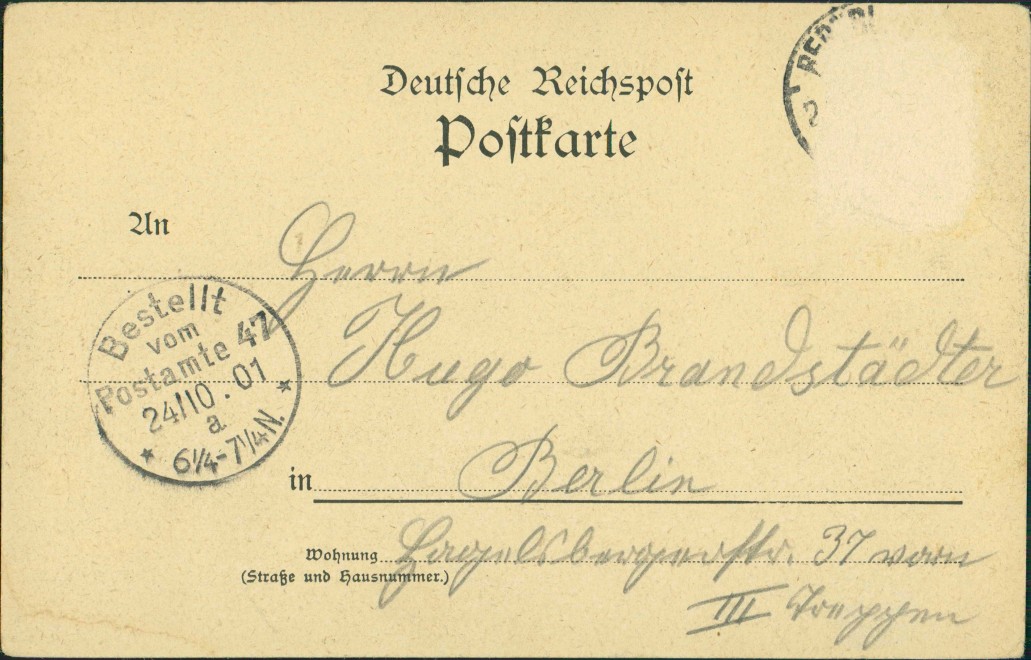 Deutsche Reichspost
Postkarte
An
Herrn
Bestellt
vom
Postamte 47
24/10.01
a
* 6¼-7¼N. *
Hugo Brandstädter
in Berlin
Wohnung Hagelsbergerstr. 37 vorn
(Straße und Hausnummer.)
III Treppen